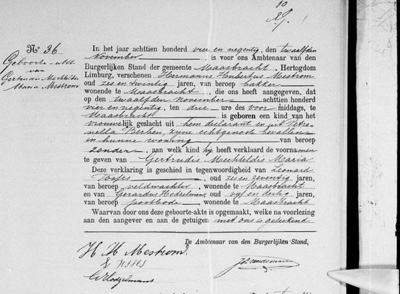 No 36.
Geboorte-akte
van
Gertrudis Mechteldis
Maria Mestrom
In het jaar achttien honderd vier en negentig, den twaalfden
November, is voor ons Ambtenaar van den
Burgerlijken Stand der gemeente Maasbracht, Hertogdom
Limburg, verschenen Hermanus Hubertus Mestrom
oud zes en twintig jaren, van beroep bakker
wonende te Maasbracht, die ons heeft aangegeven, dat
op den twaalfden November achttien honderd
vier en negentig, ten drie ure des voor middags, te
Maasbracht is geboren een kind van het
vrouwelijk geslacht uit hem declarant en uit Petro-
nella zijne echtgenoote bevallen
in hunne woning van beroep
zonder, aan welk kind hij heeft verklaard de voornamen
te geven van Gertrudis Mechteldis Maria
Deze verklaring is geschied in tegenwoordigheid van Leonard
oud zes en zeventig jaren,
van beroep veldwachter, wonende te Maasbracht
en Gerardus oud vijf en dertig jaren,
van beroep postbode, wonende te Maasbracht
Waarvan door ons deze geboorte-akte is opgemaakt, welke na voorlezing
aan den aangever en aan de getuigen met ons is geteekend
De Ambtenaar van den Burgerlijken Stand,
H H Mestrom